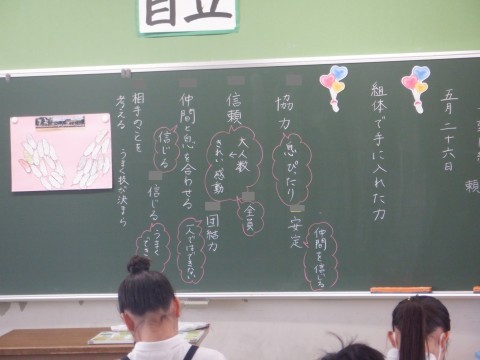 自立
五月二十六日
組体で手に入れた力
協力
息ぴったり
安定
仲間を信じる
信頼
大人数
きれい 感動
全員
団結力
一人ではできない
仲間と息を合わせる
信じる
信じる
うまく
相手のことを
考える
うまく技が決まる